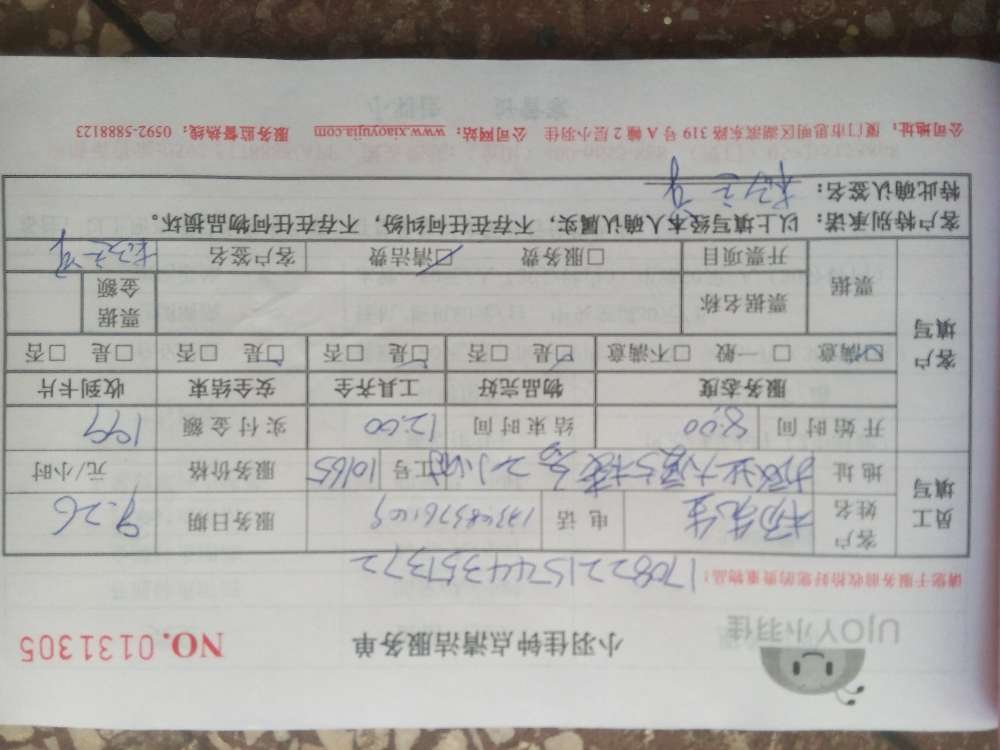 UJOY小羽佳
小羽佳钟点清洁服务单
NO.0131305
请您于服务前收拾好您的贵重物品: 170822157443513772
员工填写 客户姓名 杨先生 电话 服务日期 9.26
地址 工号 10165 服务价格 元/小时
开始时间 8:00 结束时间 12:00 实付金额 199
客户填写 服务态度 物品完好 工具齐全 安全结束 收到卡片
☑满意 □一般 □不满意 ☑是 □否 ☑是 □否 ☑是 □否 □是 □否
票据 票据名称 票据金额
开票项目 □服务费 ☑清洁费 客户签名
客户特别承诺: 以上填写经本人确认属实, 不存在任何纠纷, 不存在任何物品损坏。
特此确认签名:
公司地址: 厦门市思明区湖滨东路 319 号 A 幢 2 层小羽佳 公司网站: www.xiaoyujia.com 服务监督热线: 0592-5888123